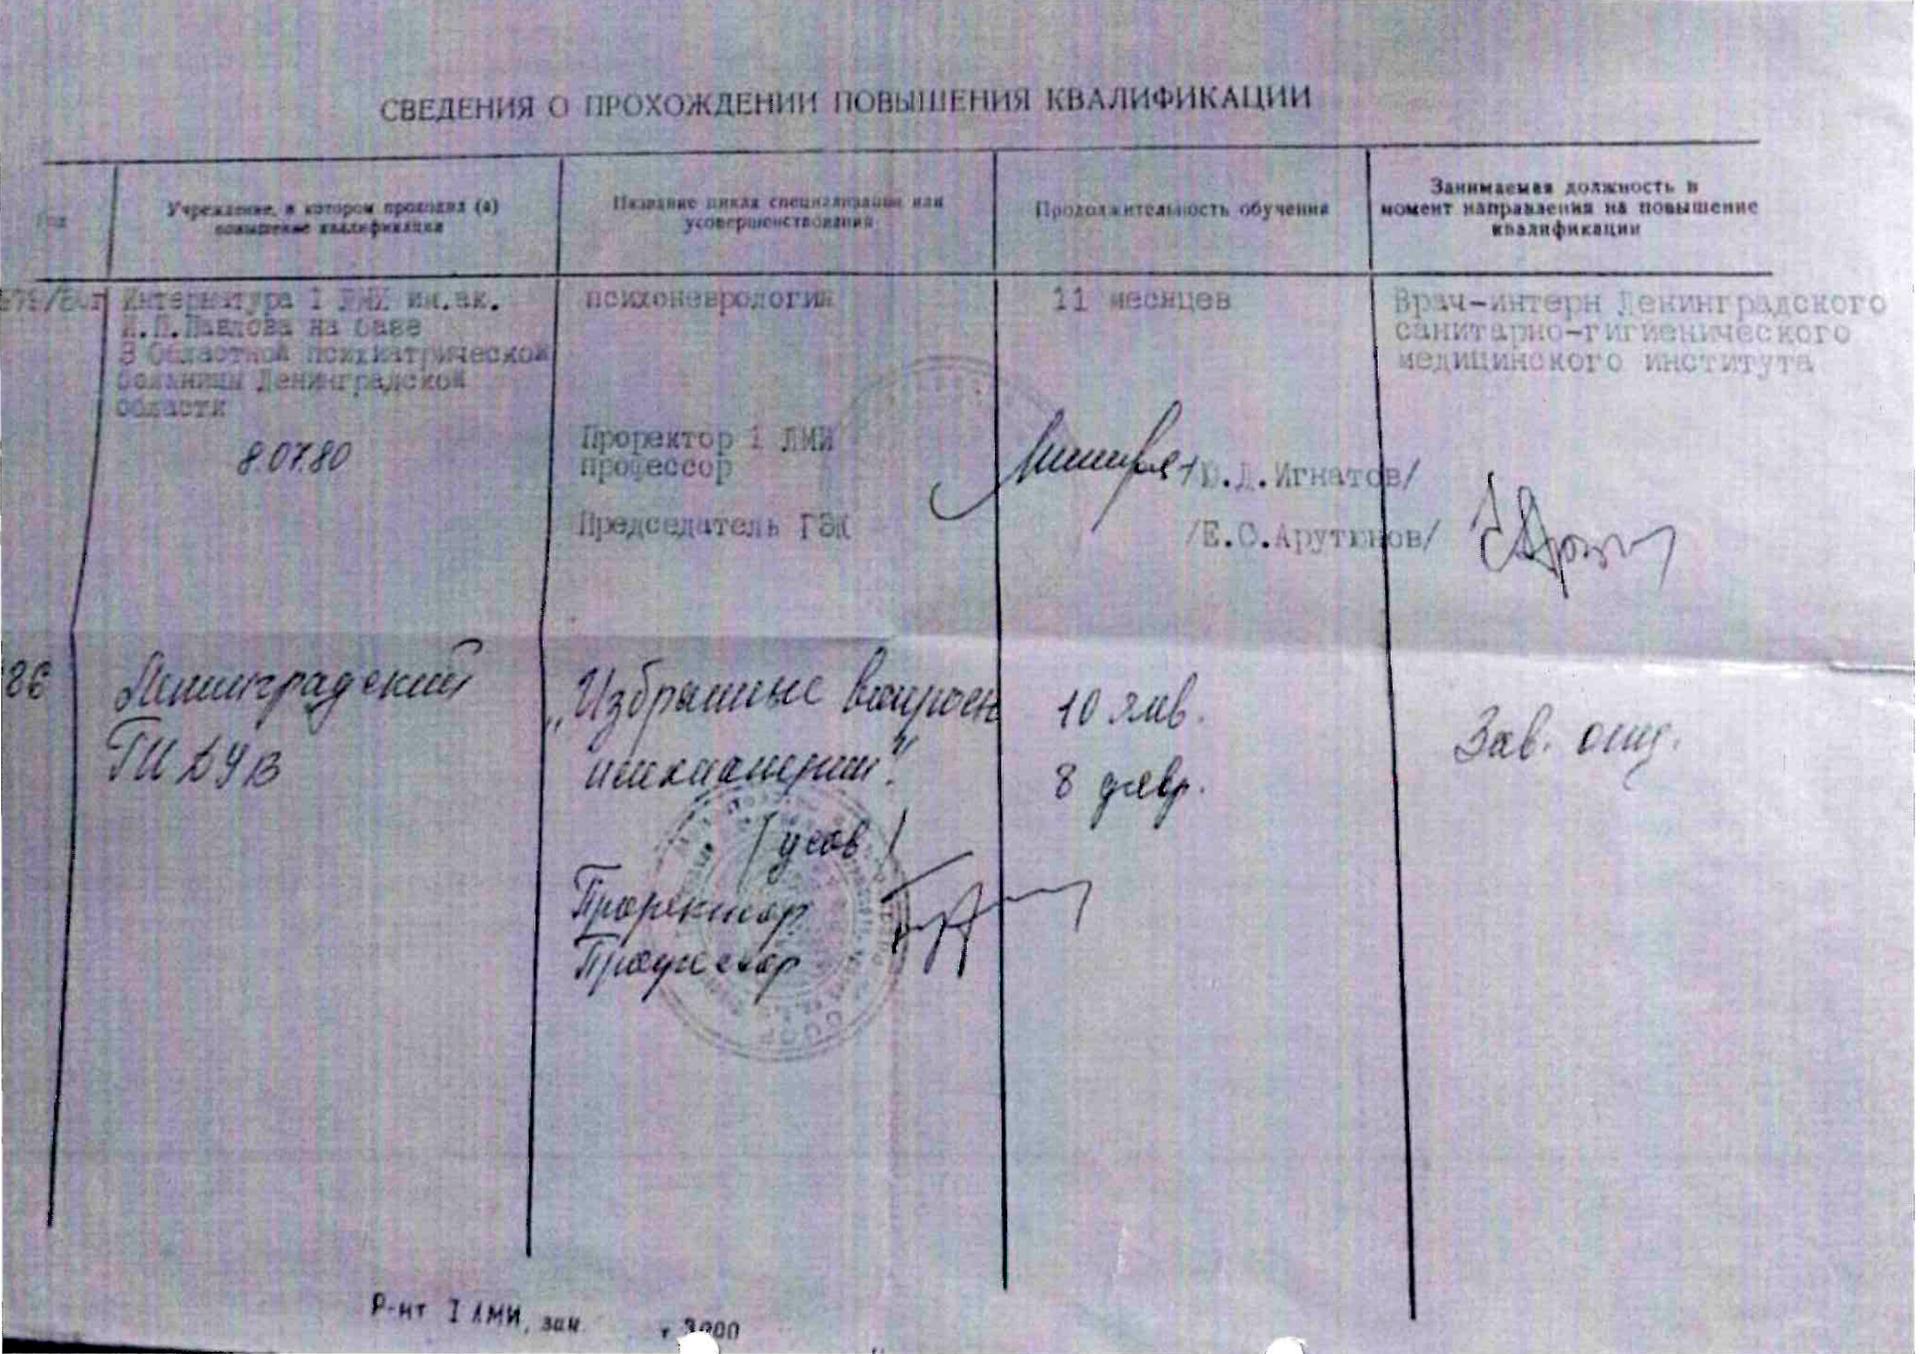 СВЕДЕНИЯ О ПРОХОЖДЕНИИ ПОВЫШЕНИЯ КВАЛИФИКАЦИИ
Год
Учреждение, в котором проходил (а)
повышение квалификации
Название цикла специализации или
усовершенствования
Продолжительность обучения
Занимаемая должность в
момент направления на повышение
квалификации
979/80г
Интернатура 1 ЛМИ им.ак.
И.П.Павлова на базе
3 Областной психиатрической
больницы Ленинградской
области
8.07.80
психоневрология
11 месяцев
Врач-интерн Ленинградского
санитарно-гигиенического
медицинского института
Проректор 1 ЛМИ
профессор
/Ю.Д.Игнатов/
Председатель ГЭК
/Е.С.Арутюнов/
86
Ленинградский
ГИДУВ
„Избранные вопросы
психиатрии".
10 янв.
8 февр.
Зав. отд.
/Гусов/
Проректор
Профессор
СССР
Р-нт I ЛМИ, зак. т 3000